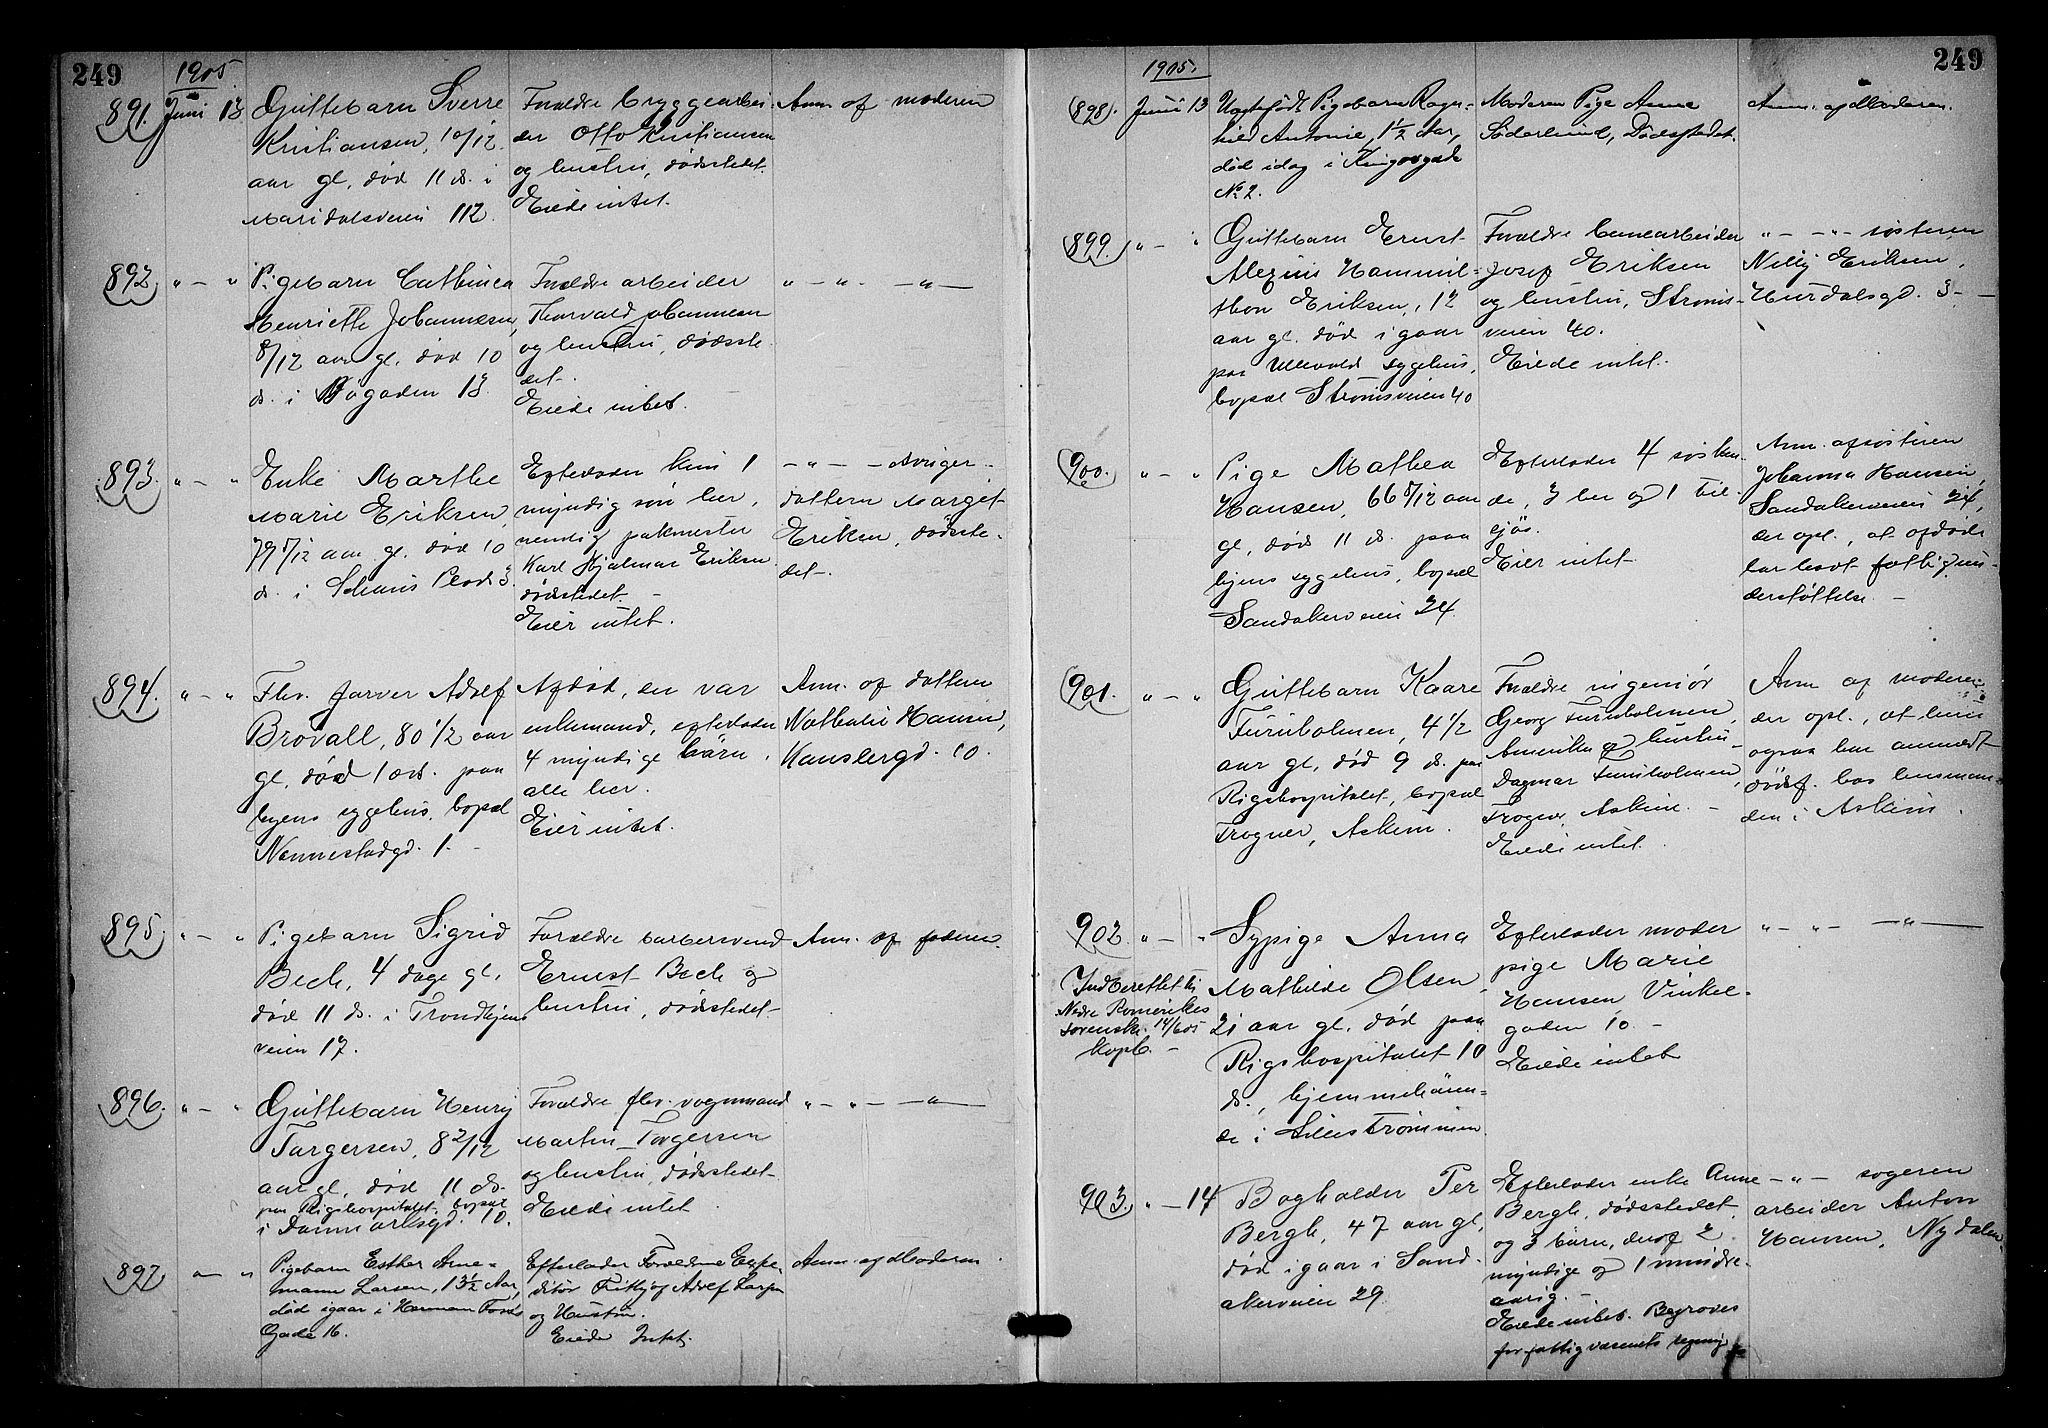 249
1905
891. Juni 13
Guttebarn Sverre
Kristiansen, 10/12
aar gl. død 11 ds. i
Maridalsveien 112.
Forældre bryggearbei-
der Otto Kristiansen
og hustru, dødsstedet.
Eiede intet.
Anm. af moderen
892. " — "
Pigebarn Cathinca
Henriette Johannesen,
8/12 aar gl. død 10
ds. i Bøgaden 13.
Forældre arbeider
Thorvald Johannesen
og hustru, dødsste-
det.
Eiede intet.
" — " — " —
893. " — "
Enke Marthe
Marie Eriksen,
79 5/12 aar gl. død 10
ds. i Schous Plads 3.
Efterlader kun 1
myndig søn her,
nemlig pakmester
Karl Hjalmar Eriksen
dødsstedet. —
Eier intet.
— " — — sviger-
dattern Marget
Eriksen, dødsste-
det.
894. " — "
Fhv. farver Adolf
Brovall, 80 1/2 aar
gl. død 10 ds. paa
byens sygehus, bopæl
Nannestadgd. 1. —
Afdød, der var
enkemand, efterlader
4 myndige børn,
alle her.
Eier intet.
Anm. af dattern
Nathalie Hansen,
Hauslergd. 10.
895. " — "
Pigebarn Sigrid
Bech, 4 dage gl.
død 11 ds. i Trondhjems
veien 17.
Forældre barbersvend
Ernest Bech og
hustru, dødsstedet
Anm. af faderen.
896. " — "
Guttebarn Henry
Torgersen, 8 2/12
aar gl. død 11 ds.
paa Rigshospitalet, bopæl
i Danmarksgd. 10.
Forældre fhv. vognmand
Martin Torgersen
og hustru, dødsstedet
Eiede intet
" — " — " —
897 " — "
Pigebarn Esther Anne-
marie Larsen, 13 1/2 Aar,
død igaar i Herman Foss
Gade 16.
Efterlader Forældrene Expe-
ditør Fritjof Adolf Larsen
og Hustru.
Eiede Intet.
Anm. af Moderen
249
1905.
898. Juni 13
Uægtefødt Pigebarn Ragn-
hild Antonie, 1 1/2 Aar,
død idag i Kingosgade
No 2.
Moderen Pige Anna
Söderlund, Dødsstedet.
Anm. af Moderen.
899. " — "
Guttebarn Ernst
Alezius Hammil-
thon Eriksen, 12
aar gl. død igaar
paa Ullevold sygehus,
bopæl Strømsveien 40
Forældre banearbeider
Josef Eriksen
og hustru, Strøms-
veien 40.
Eiede intet.
" — — " — søsteren
Nelly Eriksen,
Hurdalsgd. 3. —
900. " — "
Pige Mathea
Hansen, 66 5/12 aar
gl. død 11 ds. paa
byens sygehus, bopæl
Sandakerveien 24
Efterlader 4 søsken-
de, 3 her og 1 til-
sjøs.
Eier intet
Anm. af søsteren
Johanna Hansen,
Sandakerveien 24,
der opl., at afdøde
har havt fattigun-
derstøttelse. —
901. " — "
Guttebarn Kaare
Furuholmen, 4 1/2
aar gl. død 9 ds. paa
Rigshospitalet, bopæl
Trogner, Askim.
Forældre ingeniør
Georg Furuholmen,
Amerika og hustru
Dagmar Furuholmen,
Trogner, Askim. —
Eiede intet.
Anm. af moderen
der opl., at hun
ogsaa har anmeldt
dødsf. hos lensman-
den i Askim.
902. " — "
Indberettet til
Nedre Romerikes
sorenskr. 14/6 05
Kopb. —
Sypige Anna
Mathilde Olsen
21 aar gl. død paa
Rigshospitalet 10
ds., hjemmehøren-
de i Lillestrømmen.
Efterlader moder
pige Marie
Hansen Vinkel-
gaden 10. —
Eiede intet
" — " — " —
903. " — 14
Bogholder Per
Bergh, 47 aar gl.
død igaar i Sand-
akerveien 29.
Efterlader enke Anne
Bergh, dødsstedet,
og 3 børn, deraf 2
myndige og 1 mindre-
aarig. —
Eiede intet. Begraves
for fattigvæsenets regning
— " — svogeren
arbeider Anton
Hansen, Nydalen.